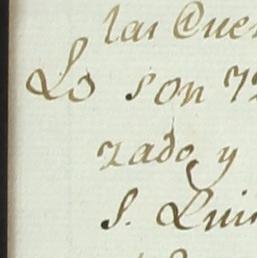 las Cue
Lo son 72
zado, y
S. Luis